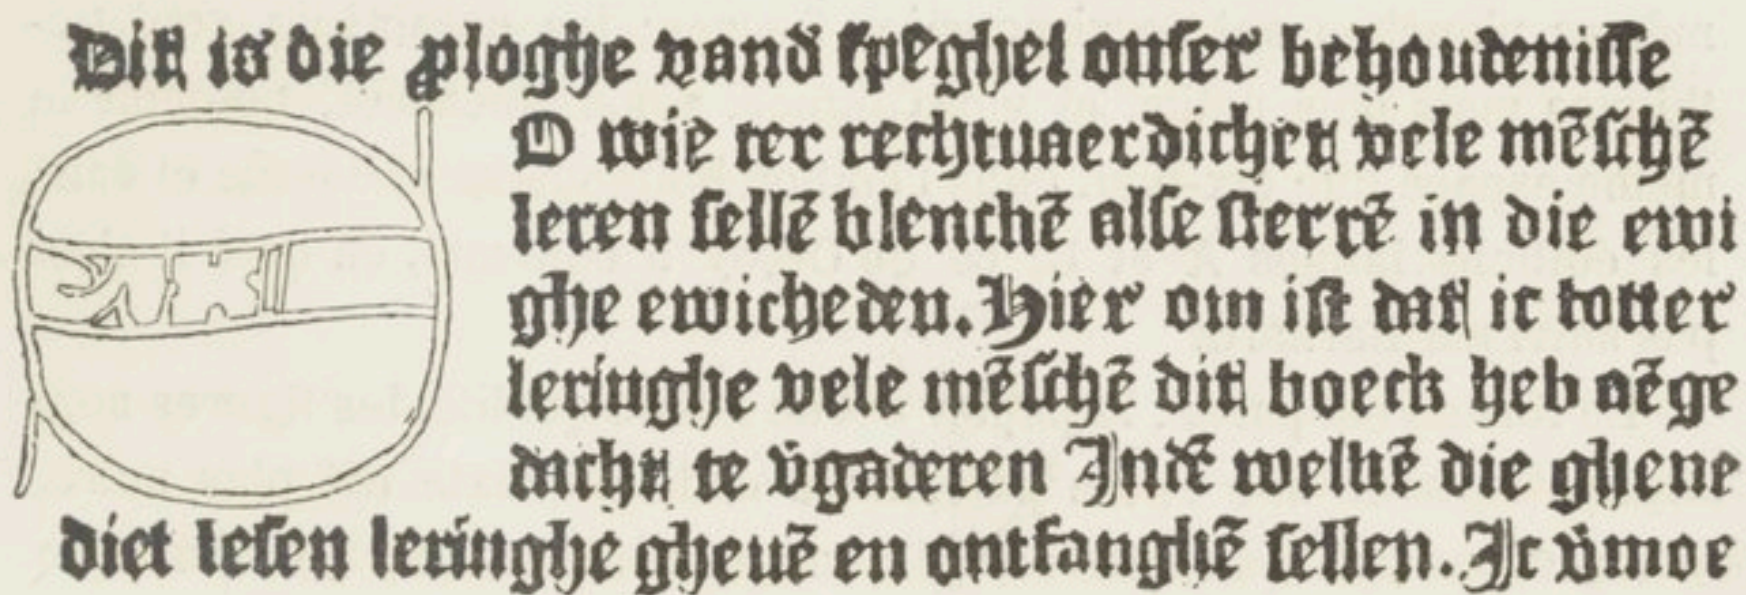 Dit is die ploghe vand̄ spēghel onser behoudenisse
O wie ter rechtuaerdichen vele mēschē
leren sellē blenchē alse sterrē in die ewi
ghe ewicheden. Hier om ist dat ic totter
leringhe vele mēschē dit boeck heb aēge
dacht te v̄gaderen Indē weluē die ghene
diet lesen leringhe gheuē en ontfanghē sellen. Ic v̄moe